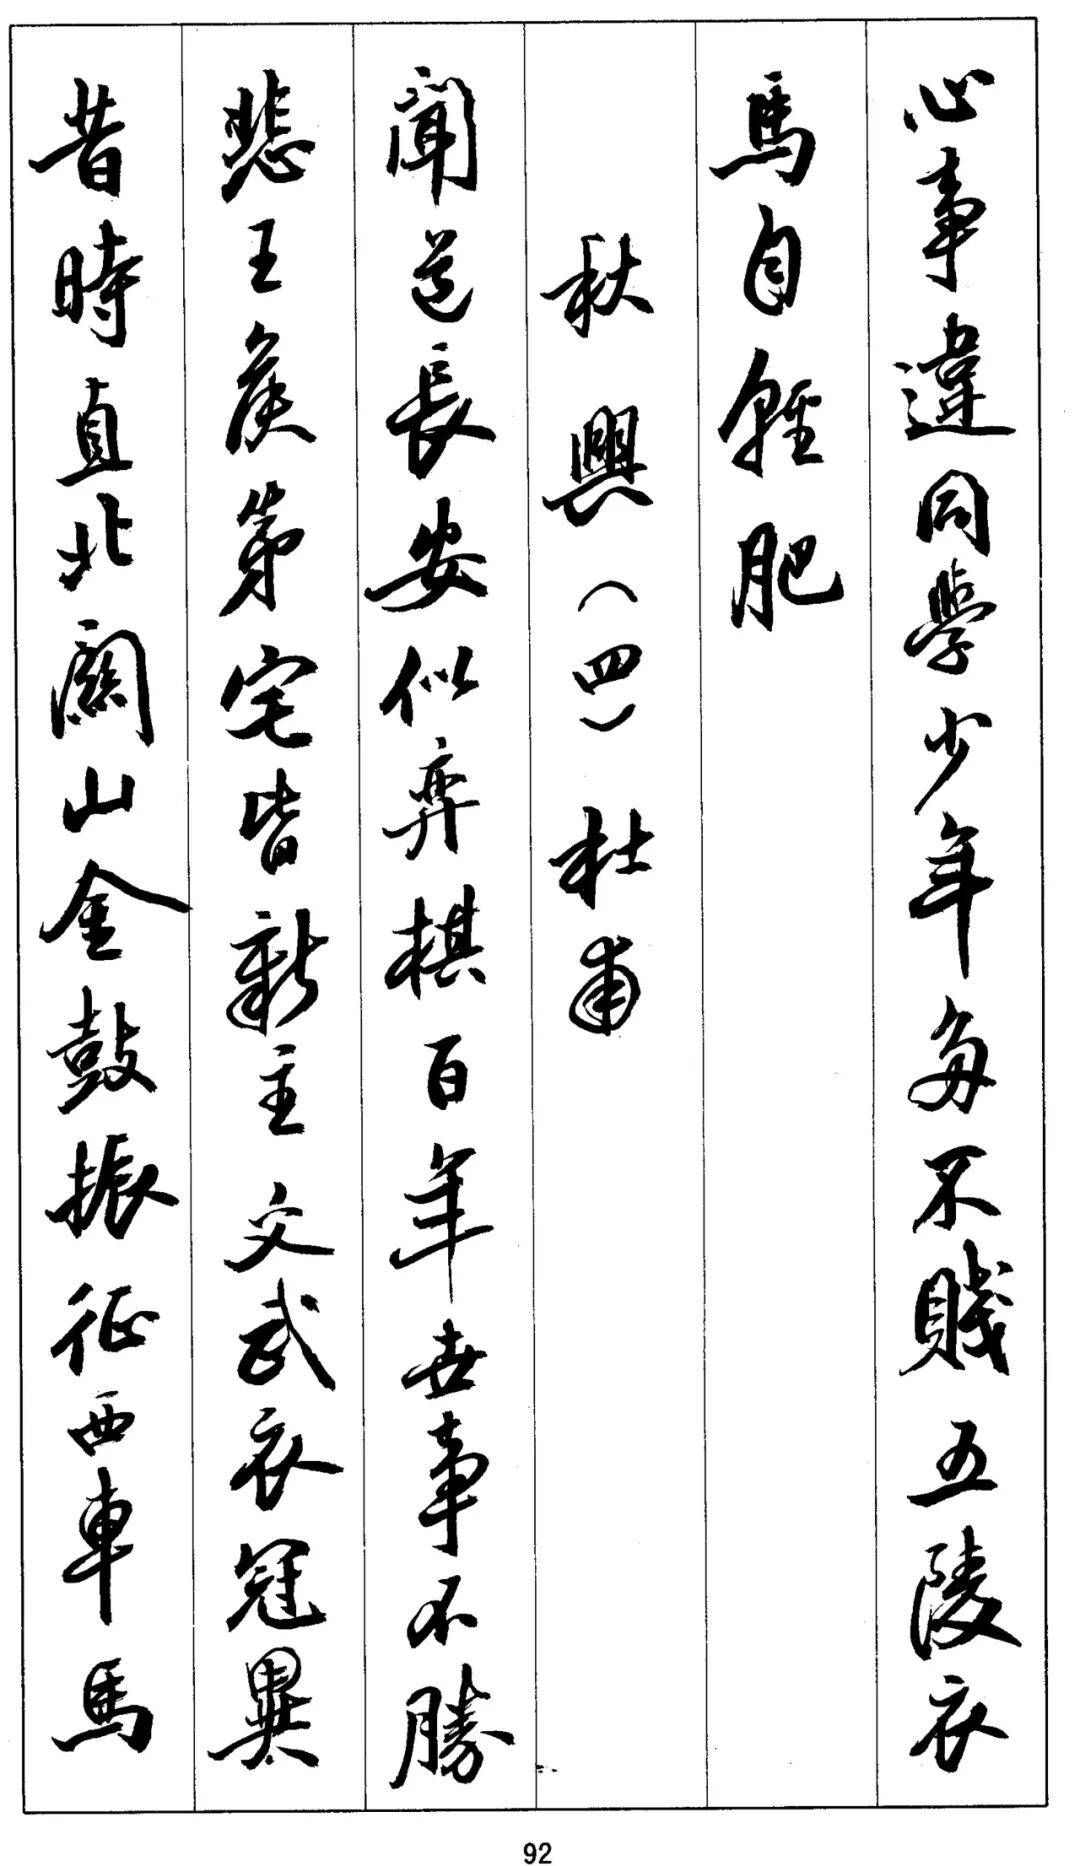 心事違同學少年多不賤五陵衣
馬自輕肥
秋興（四）杜甫
聞道長安似弈棋百年世事不勝
悲王侯第宅皆新主文武衣冠異
昔時直北關山金鼓振征西車馬
92